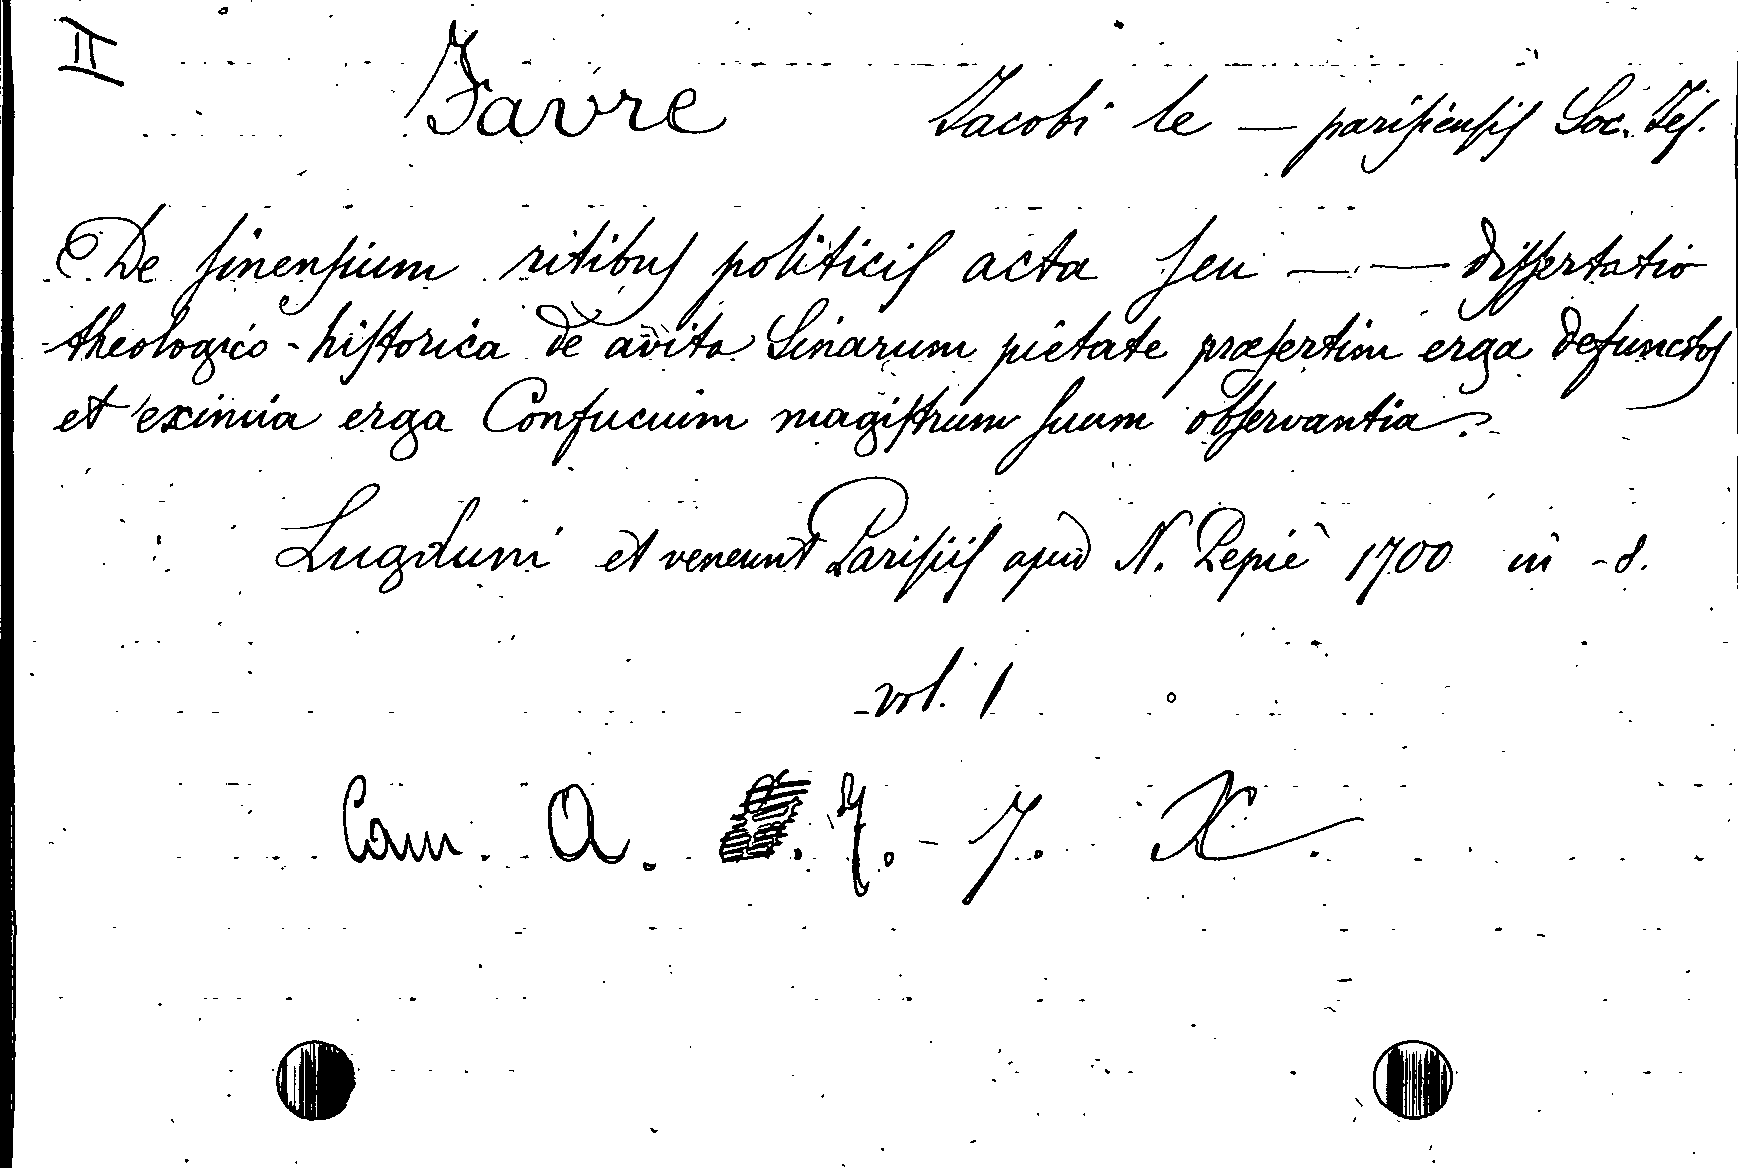 II
Favre Jacobi le — parisiensis Soc. Jes.
De sinensium ritibus politicis acta seu — — dissertatio
theologico-historica de avita Sinarum pietate præsertim erga defunctos
et eximia erga Confucium magistrum suum observantia.
Lugduni et veneunt Parisiis apud N. Pepiè 1700 in -8.
vol. 1
Cam. A. 7. - 7. X.